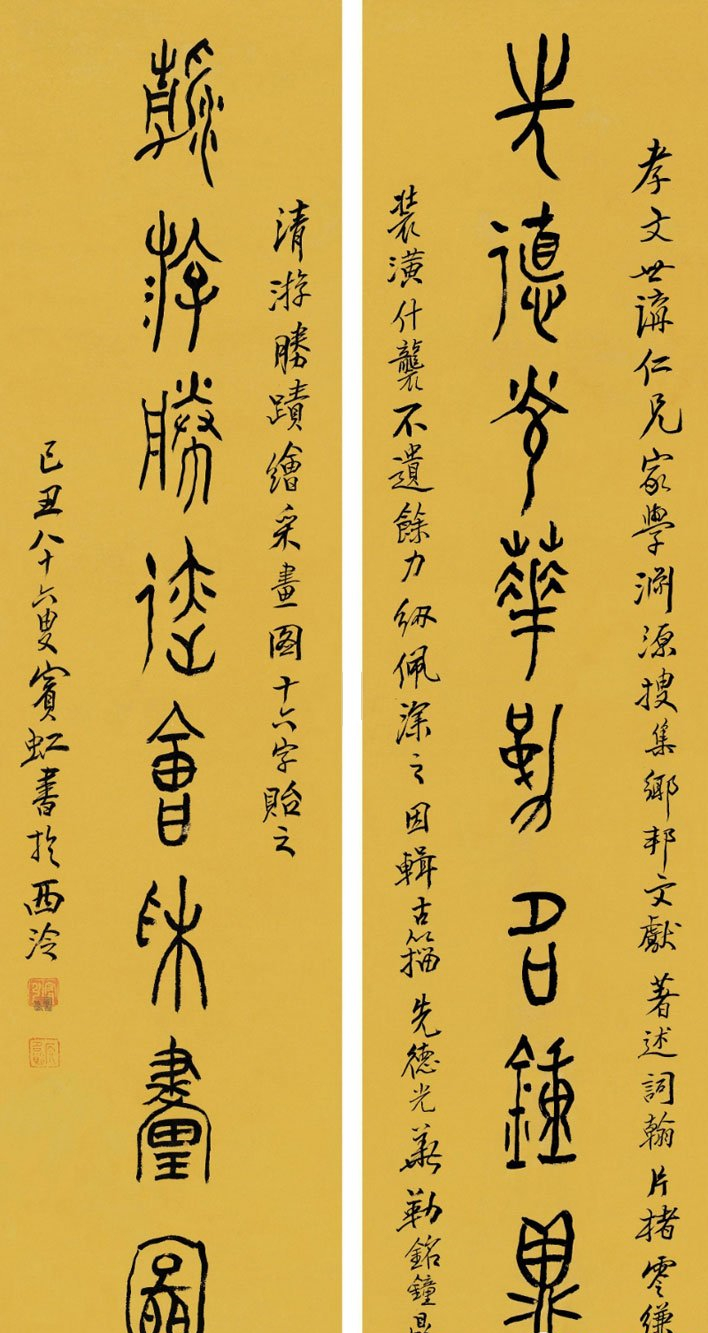 孝文世講仁兄家學淵源搜集鄉邦文獻著述詞翰片楮零縑
先德光華勒名鍾鼎
裝潢什襲不遺餘力紉佩深之因輯古籀先德光華勒銘鐘鼎
清游勝蹟繪采畫图十六字貽之
清游勝迹會采畫圖
己丑八十六叟賓虹書於西泠